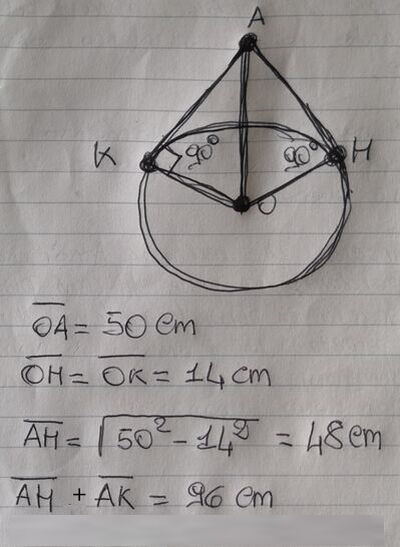 A
K 90° 90° H
O
OA = 50 cm
OH = OK = 14 cm
AH = √50² - 14² = 48 cm
AH + AK = 96 cm